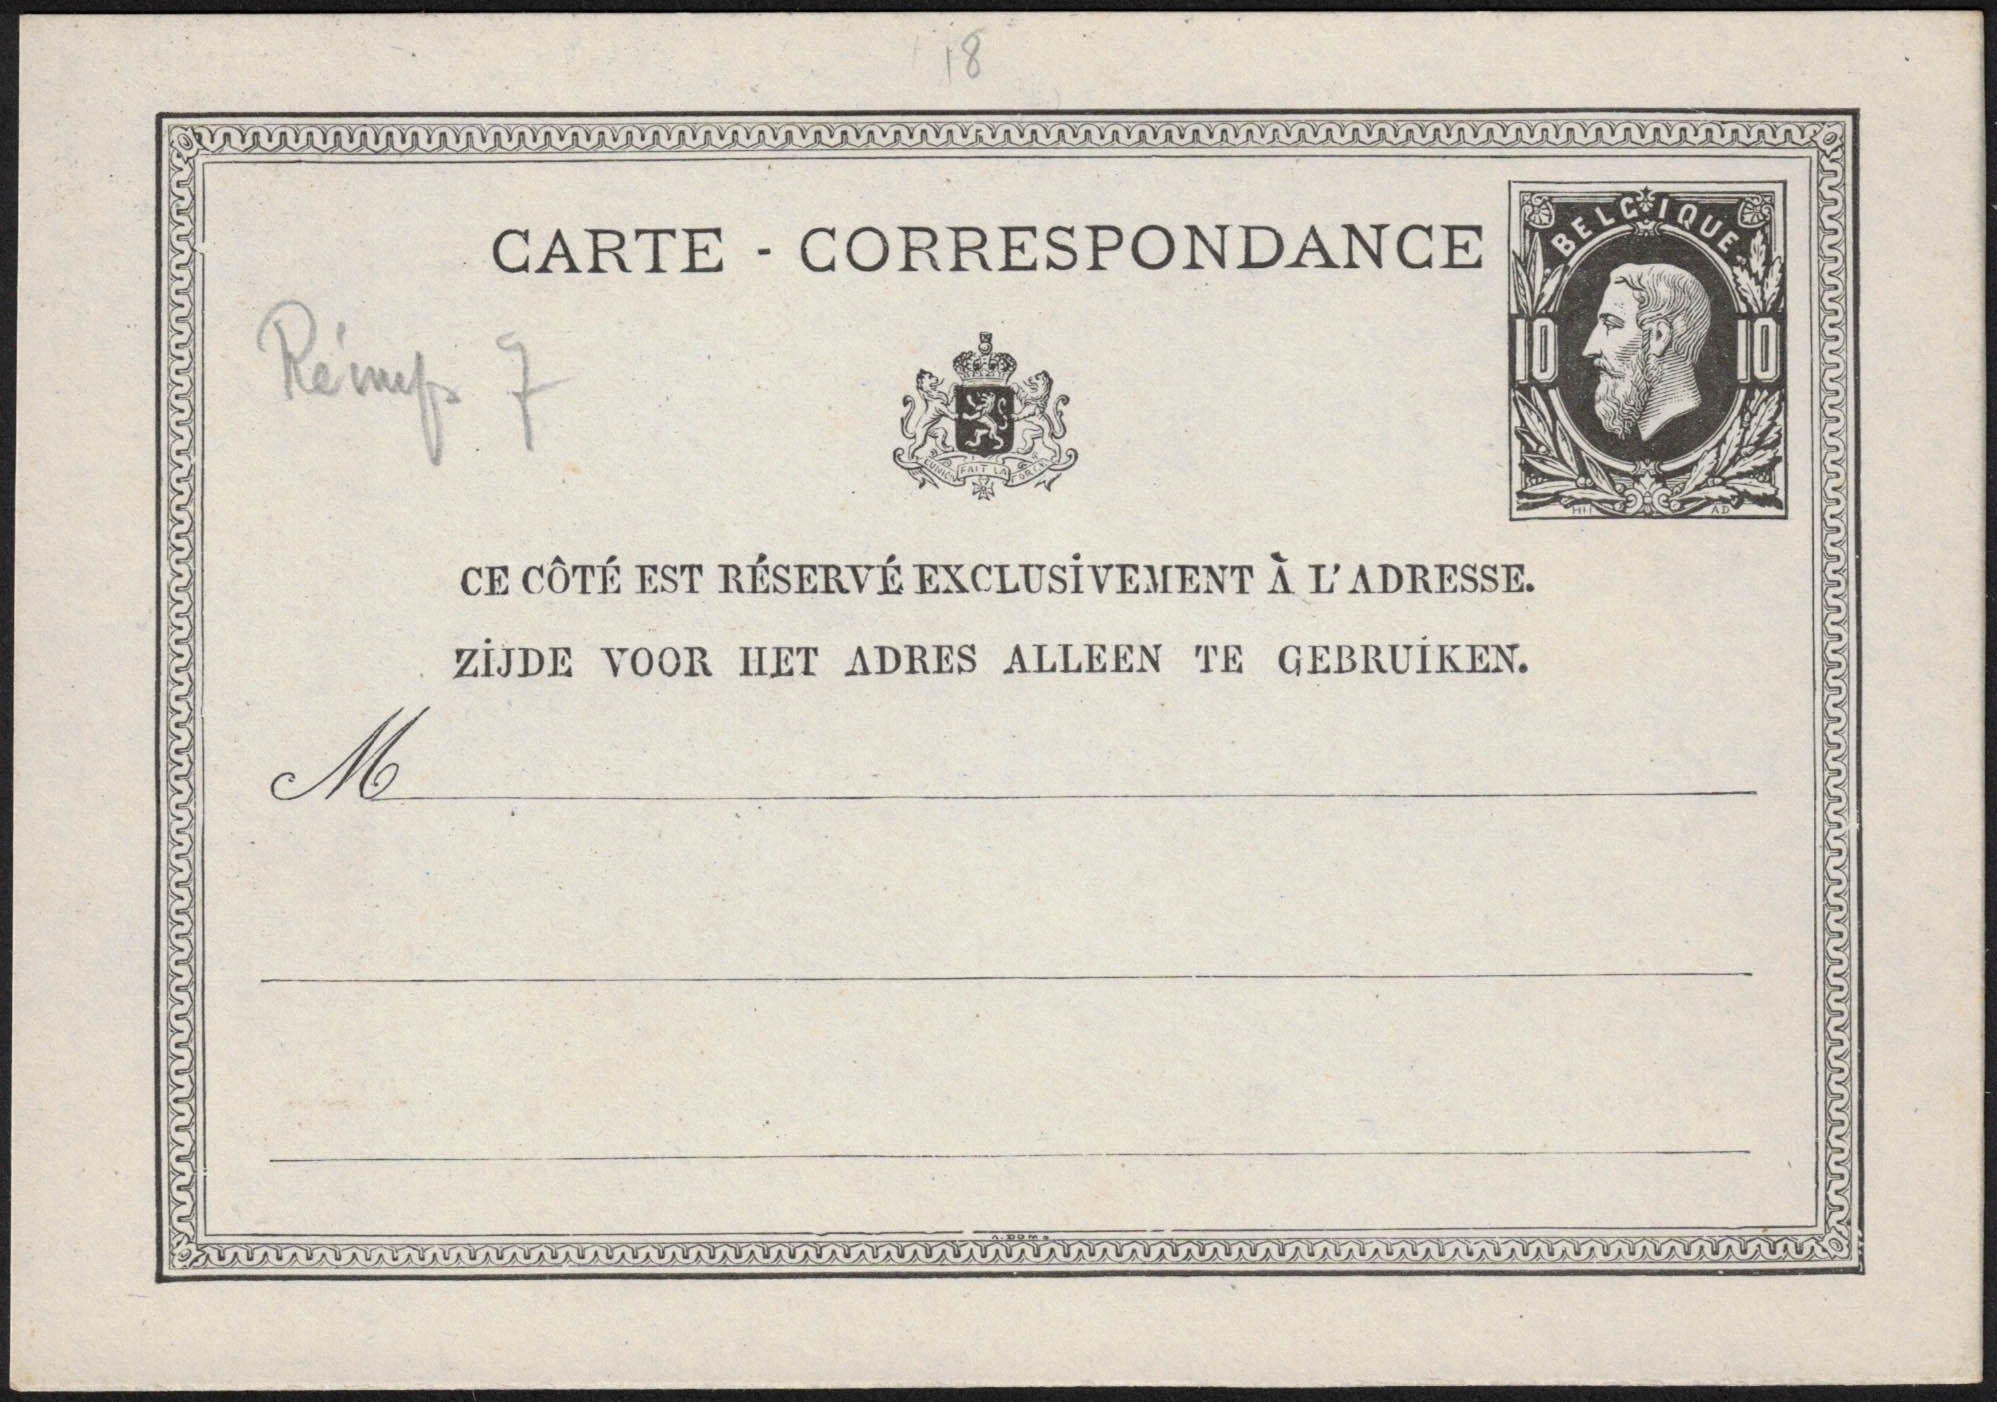 18
BELGIQUE
CARTE - CORRESPONDANCE
10 10
Réimp 7
L'UNION FAIT LA FORCE
HH AD
CE CÔTÉ EST RÉSERVÉ EXCLUSIVEMENT À L'ADRESSE.
ZIJDE VOOR HET ADRES ALLEEN TE GEBRUIKEN.
M
A. DOMS